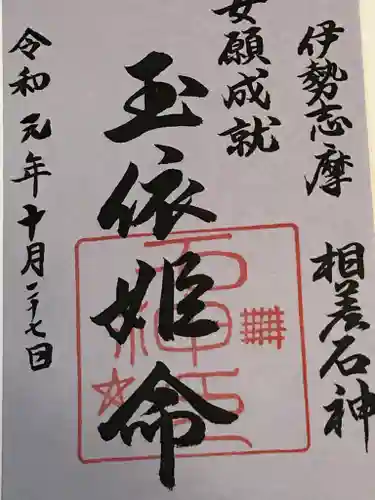 伊勢志摩　相差石神
女願成就
玉依姫命
令和元年十月二十七日
石神